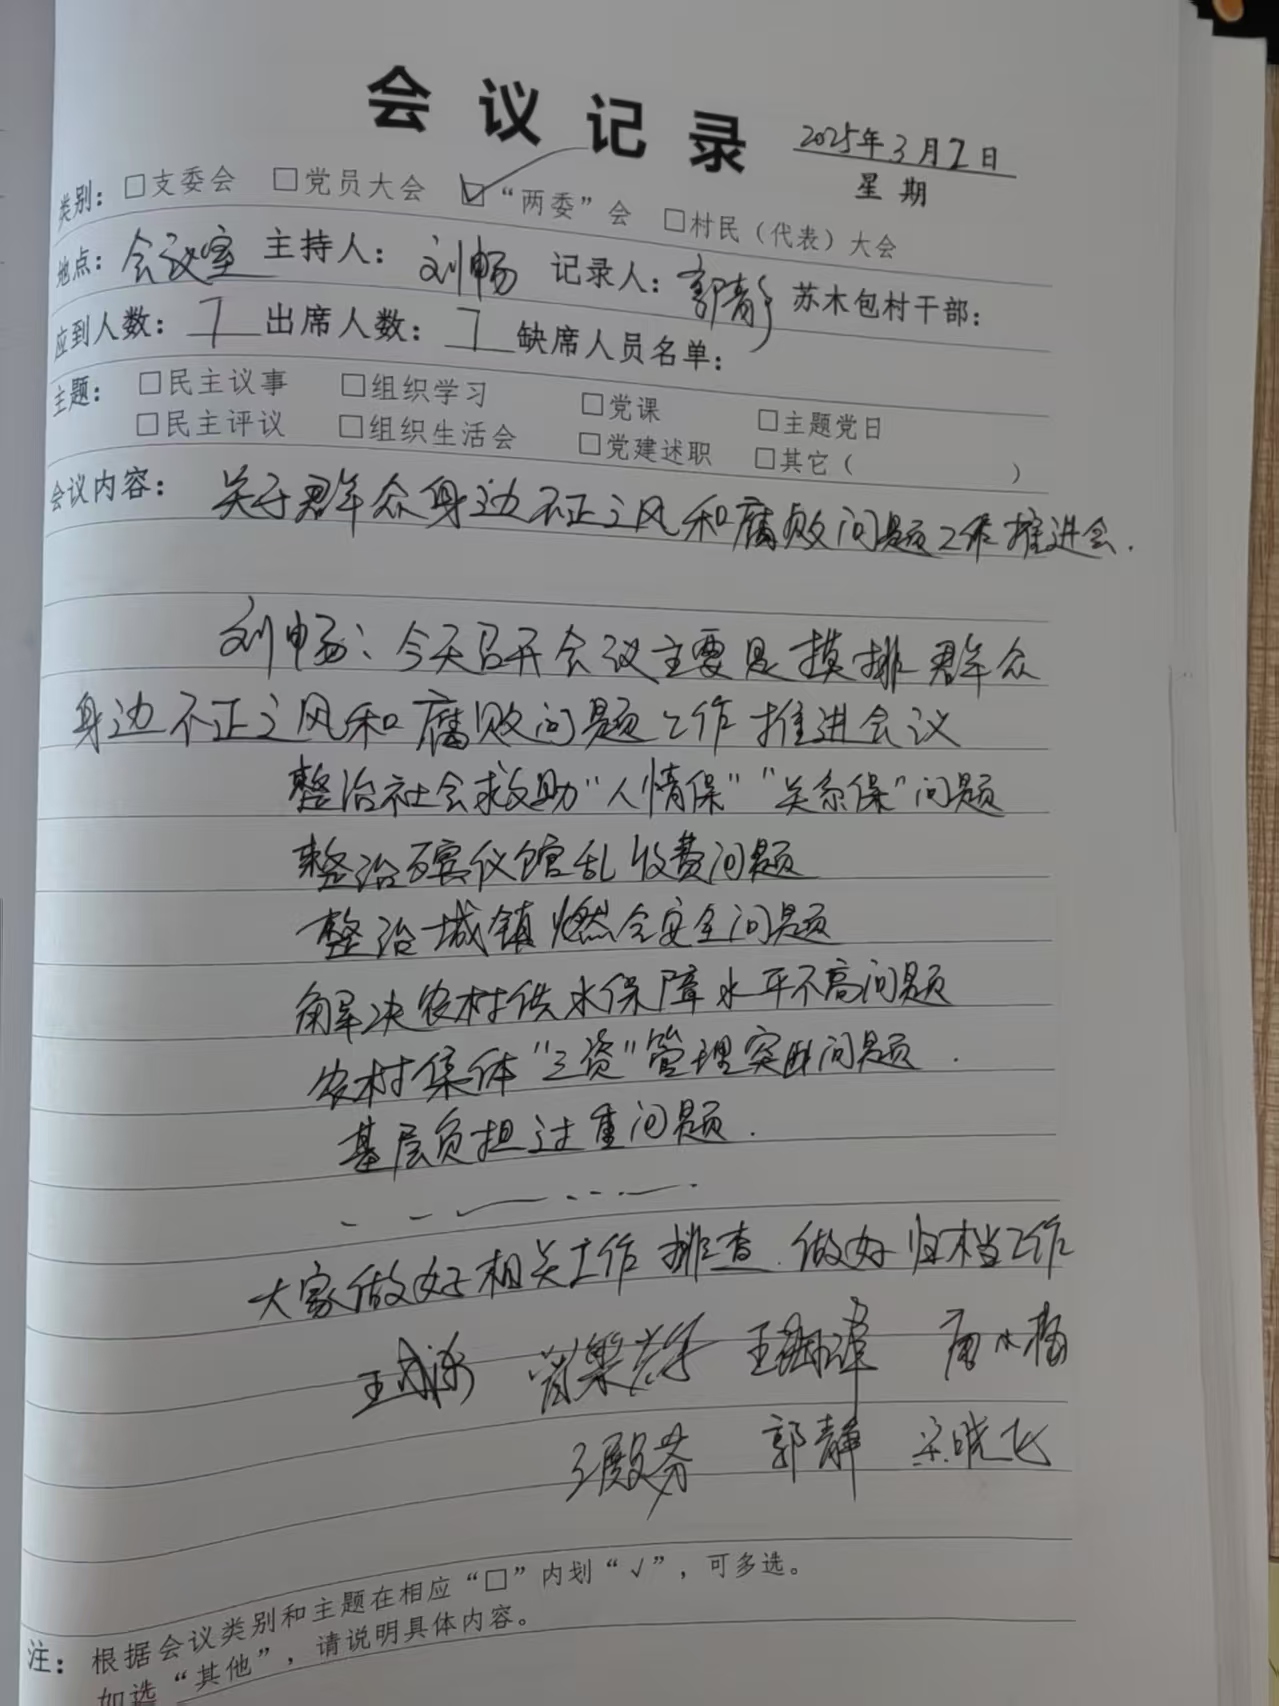 会议记录
2025年3月7日
星期
类别：□支委会 □党员大会 ☑“两委”会 □村民（代表）大会
地点：会议室 主持人：刘畅 记录人：郭静 苏木包村干部：
应到人数：7 出席人数：7 缺席人员名单：
主题：□民主议事 □组织学习 □党课 □主题党日
□民主评议 □组织生活会 □党建述职 □其它（ ）
会议内容：关于群众身边不正之风和腐败问题工作推进会.
刘畅：今天召开会议主要是摸排群众
身边不正之风和腐败问题工作推进会议
整治社会救助“人情保”“关系保”问题
整治殡仪馆乱收费问题
整治城镇燃会安全问题
解决农村供水保障水平不高问题
农村集体“三资”管理突出问题.
基层负担过重问题.
大家做好相关工作排查.做好归档工作
郭静 晓飞
注：根据会议类别和主题在相应“□”内划“√”，可多选。
如选“其他”，请说明具体内容。